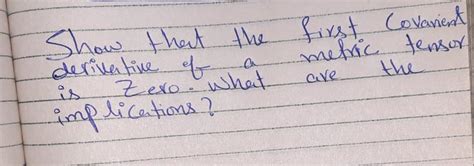 Show that the first Covarient
derivative of a metric tensor
is Zero. What are the
implications?